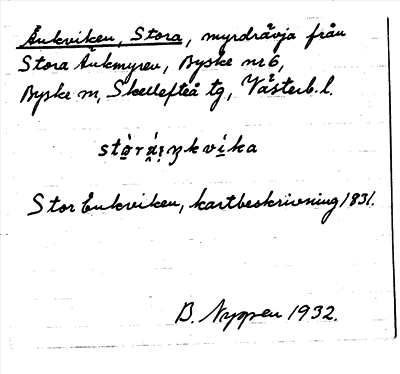 Äukviken, Stora, myrdråvja från
Stora Äukmyren, Byske nr 6,
Byske sn, Skellefteå tg, Västerb. l.
Stor Eukviken, kartbeskrivning 1831.
B. Nyppen 1932.